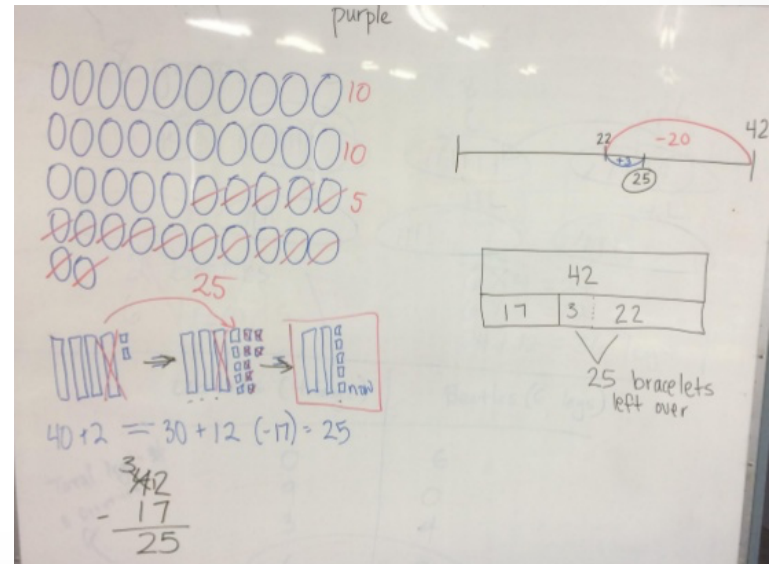 purple
10
10
5
25
now
40+2 = 30+12 (-17) = 25
3 12
42
- 17
25
42
22
-20
+3
25
42
17 3 22
25 bracelets
left over